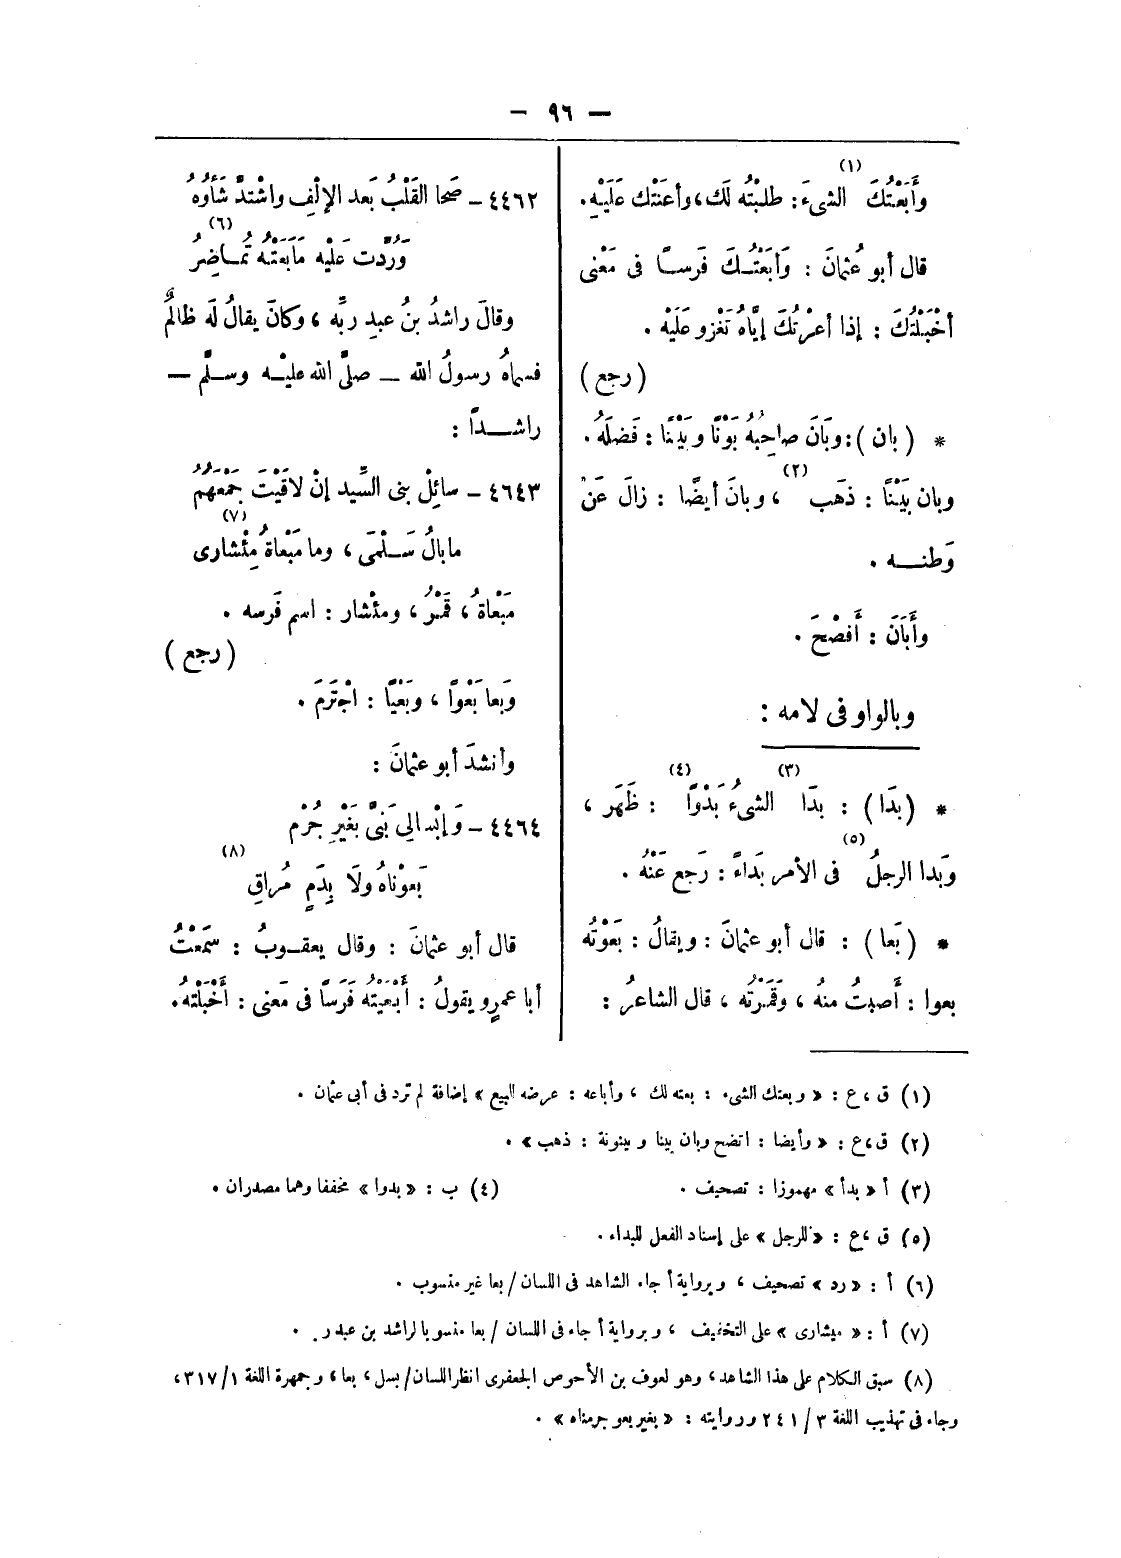 — ٩٦ —
وَأَبَعْتُكَ (١) الشىءَ : طلبْتُه لَك ، وأعَنْتك عَلَيْهِ .
قال أبو عُثمانَ : وَأبَعْتُـكَ فَرسـاً فى مَعْنى
أخْبَلْتُكَ : إذا أعرْتُكَ إيَّاهُ تَغْزو عَلَيْه .
( رجع )
* ( بان ) : وبَانَ صاحِبُهُ بَوْنًا وبَيْنًا : فَضلَهُ .
وبان بَيْنًا : ذهَب (٢) ، وبانَ أيضًا : زالَ عَنْ
وَطنـــه .
وأَبَانَ : أَفصْحَ .
وبالواو فى لامه :
* ( بدَا ) : بدَا (٣) الشىءُ بَدْوًا (٤) : ظَهَر ،
وَبدا الرجلُ (٥) فى الأمر بَداءً : رَجع عَنْهُ .
* ( بَعا ) : قال أبو عثمانَ : ويقالُ : بَعَوْتُه
بعوا : أَصبتُ منهُ ، وَقَمَرْتُه ، قال الشاعرُ :
٤٤٦٢ – صَحا القَلْبُ بَعد الإلْفِ واشْتدَّ شَأوُهُ
وَرُدَّت عَليْه مَابَعَتْـهُ تُمـاضِرُ (٦)
وقالَ راشدُ بنُ عبدِ ربِّه ، وكانَ يقالُ لَه ظالمٌ
فسماهُ رسولُ الله — صلَّى الله عليْـه وسـلَّم —
راشـــدًا :
٤٦٤٣ – سائِلْ بنى السَّيد إنْ لاقَيْتَ جَمْعَهُمُ
مابالُ سَــلْمَى ، وما مَبْعاةُ مِئْشارى (٧)
مَبْعاةُ ، قَمْرُ ، ومئْشار : اسم فَرسه .
( رجع )
وَبعا بَعْواً ، وبَعْيًا : اجْتَرَمَ .
وأنشدَ أبو عثمانَ :
٤٤٦٤ – وَإبْسالِي بَنىَّ بَغْيرِ جُرْم
بَعوْناهُ ولَا بِدَمٍ مُراقِ (٨)
قال أبو عثمانَ : وقال يعقـوبُ : سَمَعْتُ
أبا عمرٍو يقولُ : أبْعَيْتُه فَرَسًا فى مَعنى : أخْبَلتهُ .
(١) ق ، ع : « وبعتك الشىء : بعته لك ، وأباعه : عرضه للبيع » إضافة لم ترد فى أبى عثمان .
(٢) ق ، ع : « وأيضا : اتضح وبان بينا وبينونة : ذهب » .
(٣) أ « بدأ » مهموزا : تصحيف . (٤) ب : « بدوا » مخففا وهما مصدران .
(٥) ق ، ع : « للرجل » على إسناد الفعل للبداء .
(٦) أ : « رد » تصحيف ، وبرواية أ جاء الشاهد فى اللسان / بعا غير منسوب .
(٧) أ : « ميشارى » على التخفيف ، وبرواية أ جاء فى اللسان / بعا منسوبا لراشد بن عبدر .
(٨) سبق الكلام على هذا الشاهد ، وهو لعوف بن الأحوص الجعفرى انظر اللسان / بسل ، بعا ، وجمهرة اللغة ١ / ٣١٧ ،
وجاء فى تهذيب اللغة ٣ / ٢٤١ وروايته : « بغير بعو جرمناه » .